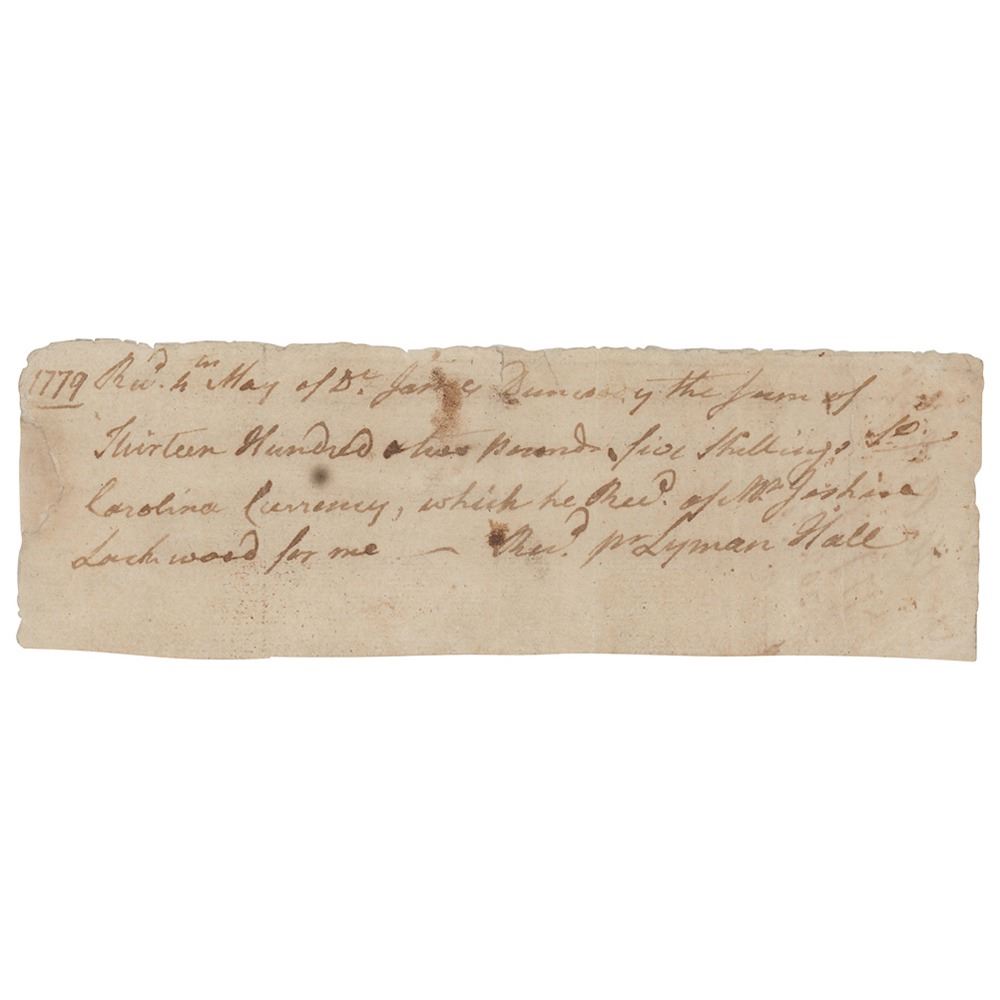 1779 Recd. 4th May of Dr. James Duncan the Sum of
Thirteen Hundred & two pounds, six Shillings So.
Carolina Currency, which he Recd. of Mr. Joshua
Lockwood for me — Recd. pr Lyman Hall